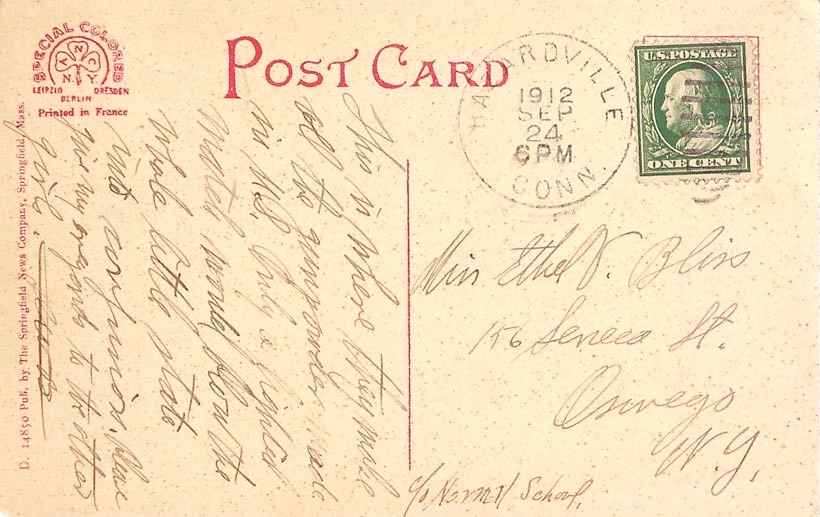 SPECIAL COLORED
A.N.C.
N.Y.
LEIPZIG DRESDEN
BERLIN
Printed in France
POST CARD
HAZARDVILLE
1912
SEP
24
6 PM
CONN.
U.S. POSTAGE
ONE CENT
D. 14850 Pub. by The Springfield News Company, Springfield, Mass.
This is where they make
all the gunpowder made
in U.S. Only a lighted
match would blow the
whole little state
into confusion. Please
give my regards to the other
girls.
Miss Ethel V. Bliss
156 Seneca St.
Oswego
N.Y.
c/o Normal School.